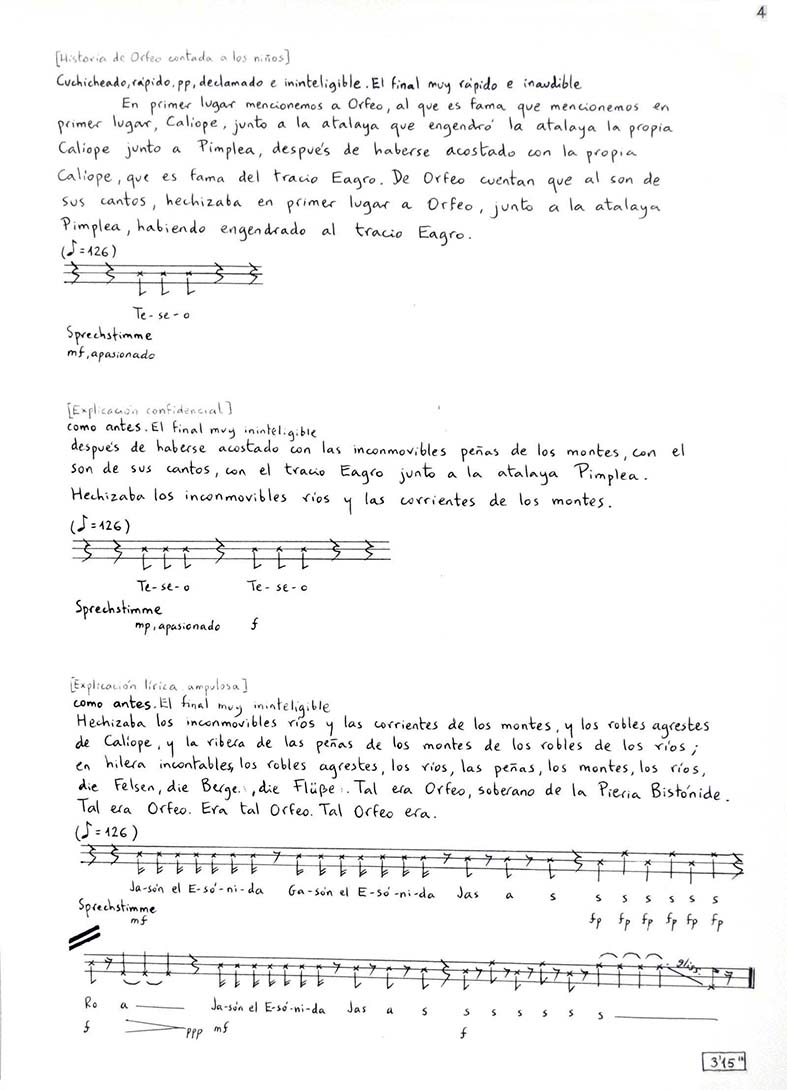 4
[Historia de Orfeo contada a los niños]
Cuchicheado, rápido, pp, declamado e ininteligible. El final muy rápido e inaudible
En primer lugar mencionemos a Orfeo, al que es fama que mencionemos en
primer lugar, Calíope, junto a la atalaya que engendró la atalaya la propia
Calíope junto a Pimplea, después de haberse acostado con la propia
Calíope, que es fama del tracio Eagro. De Orfeo cuentan que al son de
sus cantos, hechizaba en primer lugar a Orfeo, junto a la atalaya
Pimplea, habiendo engendrado al tracio Eagro.
(♪=126)
Te-se-o
Sprechstimme
mf, apasionado
[Explicación confidencial]
como antes. El final muy ininteligible
después de haberse acostado con las inconmovibles peñas de los montes, con el
son de sus cantos, con el tracio Eagro junto a la atalaya Pimplea.
Hechizaba los inconmovibles ríos y las corrientes de los montes.
(♪=126)
Te-se-o Te-se-o
Sprechstimme
mp, apasionado f
[Explicación lírica, ampulosa]
como antes. El final muy ininteligible
Hechizaba los inconmovibles ríos y las corrientes de los montes, y los robles agrestes
de Calíope, y la ribera de las peñas de los montes de los robles de los ríos;
en hilera incontables, los robles agrestes, los ríos, las peñas, los montes, los ríos,
die Felsen, die Berge, die Flüße. Tal era Orfeo, soberano de la Pieria Bistónide.
Tal era Orfeo. Era tal Orfeo. Tal Orfeo era.
(♪=126)
Ja-són el E-só-ni-da Ga-són el E-só-ni-da Jas a s s s s s s s
Sprechstimme
mf fp fp fp fp fp fp
gliss.
Ro a Ja-són el E-só-ni-da Jas a s s s s s s s
f ppp mf f
3'15"